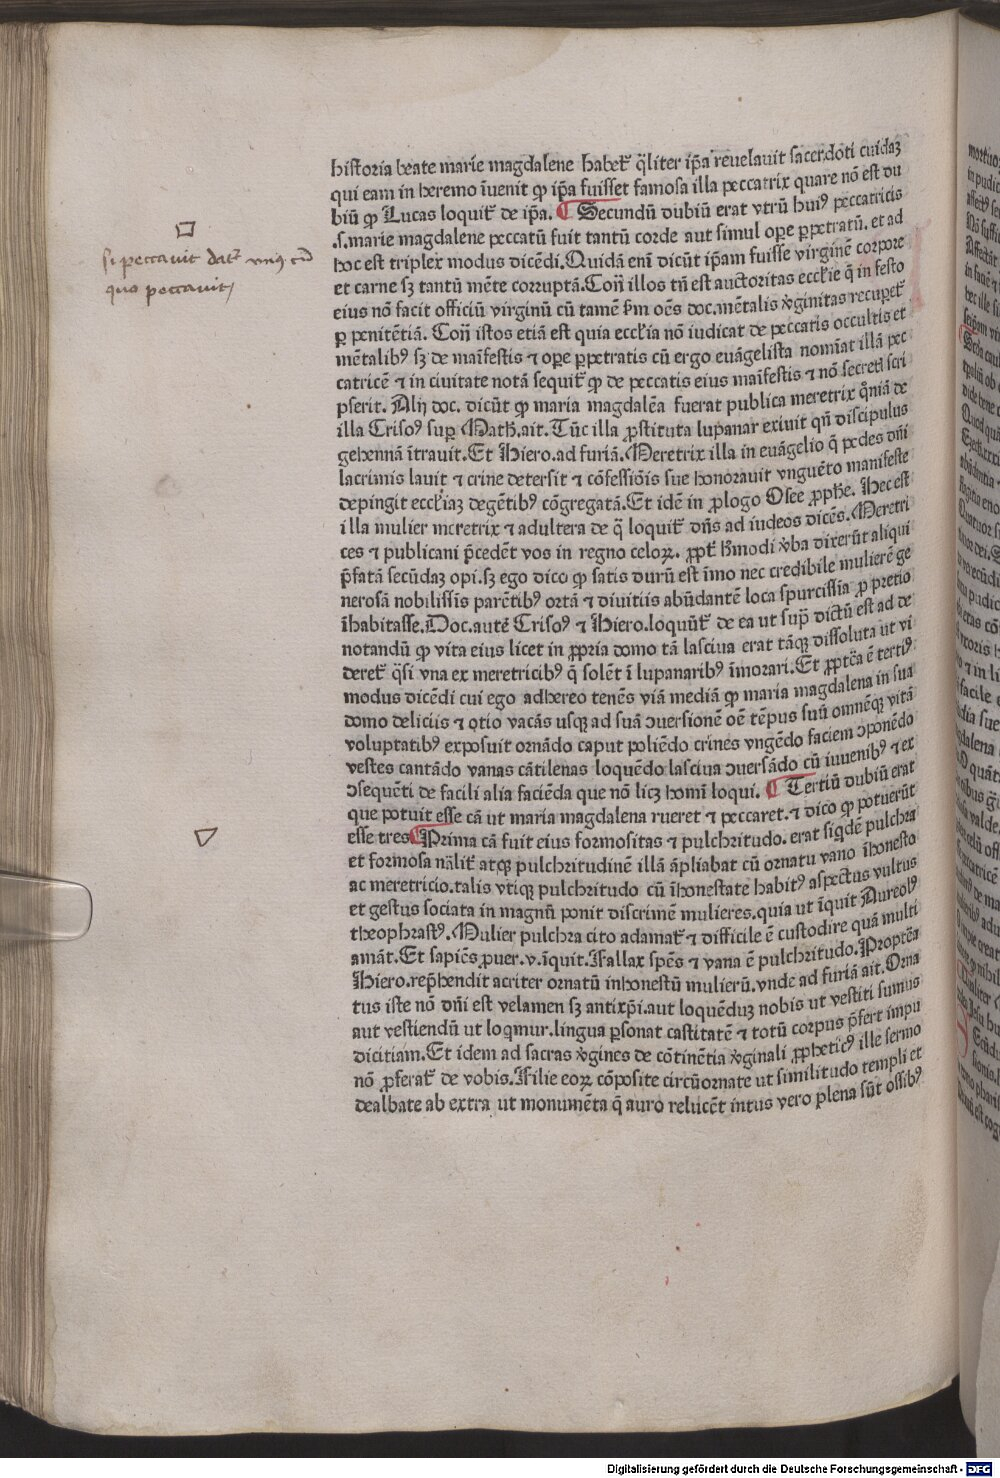 historia beate marie magdalene habet᷑ q̄liter ip̄a reuelauit sacerdoti cuidaꝫ
qui eam in heremo īuenit ꝙ ip̄a fuisset famosa illa peccatrix quare nō est du
biū ꝙ Lucas loquit᷑ de ip̄a. Secundū dubiū erat vtrū huiꝰ peccatricis
.s.marie magdalene peccatū fuit tantū corde aut simul oꝑe ꝑpetratū. et ad
hoc est triplex modus dicēdi. Quidā enī dicūt ip̄am fuisse virginē corpore
et carne sꝫ tantū mēte corruptā. Cōn̄ illos tn̄ est auctoritas eccl'ie q̄ in festo
eius nō facit officiū virginū cū tamē ẜm oēs doc. mētalis v̓ginitas recuꝑet᷑
ꝑ penitētiā. Cōn̄ istos etiā est quia eccl'ia nō iudicat de peccatis occultis et
mētalibꝰ sꝫ de maīfestis ⁊ oꝑe ꝑpetratis cū ergo euāgelista nomīat illā pec
catricē ⁊ in ciuitate notā sequit᷑ ꝙ de peccatis eius maīfestis ⁊ nō secreti scri
pserit. Alij doc. dicūt ꝙ maria magdalēa fuerat publica meretrix qm̄iā de
illa Crisoꝰ suꝑ Math̄. ait. Tūc illa ꝓstituta lupanar exiuit qn̄ discipulus
gehennā ītrauit. Et Hiero. ad furiā. Meretrix illa in euāgelio q̄ pedes dn̄i
lacrimis lauit ⁊ crine detersit ⁊ cōfessiōis sue honorauit vnguēto manifeste
depingit eccl'iaꝫ de gētibꝰ cōgregatā. Et idē in ꝓlogo Osee ꝓph̄e. Hec est
illa mulier meretrix ⁊ adultera de q̄ loquit᷑ dn̄s ad iudeos dicēs. Meretri
ces ⁊ publicani p̄cedēt vos in regno celoꝝ. ꝓpt᷑ hmōdi v̓ba dixerūt aliqui
p̄fatā secūdaꝫ opi. sꝫ ego dico ꝙ satis durū est īmo nec credibile mulierē ge
nerosā nobilissīs parētibꝰ ortā ⁊ diuitiis abūdantē loca spurcissīa ꝓ pretio
īhabitasse. Doc. autē Crisoꝰ ⁊ Hiero. loquūt᷑ de ea ut sup̄ dictū est ad de
notandū ꝙ vita eius licet in ꝓpria domo tā lasciua erat tāqꝫ dissoluta ut vi
deret᷑ q̄si vna ex meretricibꝰ q̄ solēt ī lupanaribꝰ īmorari. Et ꝓptēa ē tertiꝰ
modus dicēdi cui ego adhereo tenēs viā mediā ꝙ maria magdalena in sua
domo deliciis ⁊ otio vacās usqꝫ ad suā ↄuersionē oē tēpus suū omnēqꝫ vitā
voluptatibꝰ exposuit ornādo caput poliēdo crines vngēdo faciem ↄponēdo
vestes cantādo vanas cātilenas loquēdo lasciua ↄuersādo cū iuuenibꝰ ⁊ ex
ↄsequēti de facili alia faciēda que nō licꝫ homī loqui. Tertiū dubiū erat
que potuit esse cā ut maria magdalena rueret ⁊ peccaret. ⁊ dico ꝙ potuerūt
esse tres Prima cā fuit eius formositas ⁊ pulchritudo. erat siq̄dē pulchra
et formosa nālit᷑ atqꝫ pulchritudinē illā āpliabat cū ornatu vano īhonesto
ac meretricio. talis vtiqꝫ pulchritudo cū īhonestate habitꝰ aspectus vultus
et gestus sociata in magnū ponit discrimē mulieres. quia ut īquit Aureolꝰ
theophrastꝰ. Mulier pulchra cito adamat᷑ ⁊ difficile ē custodire quā multi
amāt. Et sapiēs ꝓuer. v. īquit. Fallax spēs ⁊ vana ē pulchritudo. Proptēa
Hiero. rep̄hendit acriter ornatū inhonestū mulierū. vnde ad furiā ait. Orna
tus iste nō dn̄i est velamen sꝫ antixp̄i. aut loquēduꝫ nobis ut vestiti sumus
aut vestiendū ut loqmur. lingua ꝑsonat castitatē ⁊ totū corpus p̄fert impu
dicitiam. Et idem ad sacras v̓gines de cōtinētia v̓ginali ꝓpheticꝰ ille sermo
nō ꝓferat᷑ de vobis. Filie eoꝝ cōposite circūornate ut similitudo templi et
dealbate ab extra ut monumēta q̄ auro relucēt intus vero plena sūt ossibꝰ
si peccauit dat᷑ vnꝰ cū
quo peccauit